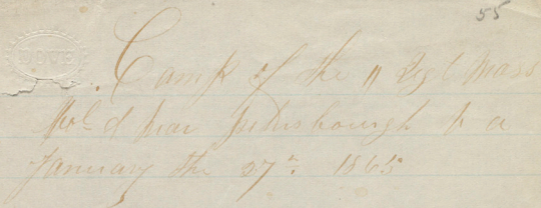 55
DOVER
Camp of the 11 Regt Mass
Vol d near petersbourgh v a
January the 27th 1865